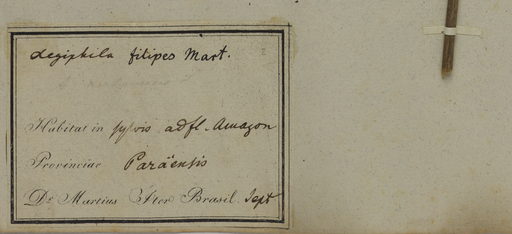 Aegiphila filipes Mart.
Habitat in sylvis ad fl. Amazon
Provinciae Paraënsis
Dr Martius Iter Brasil. Sept